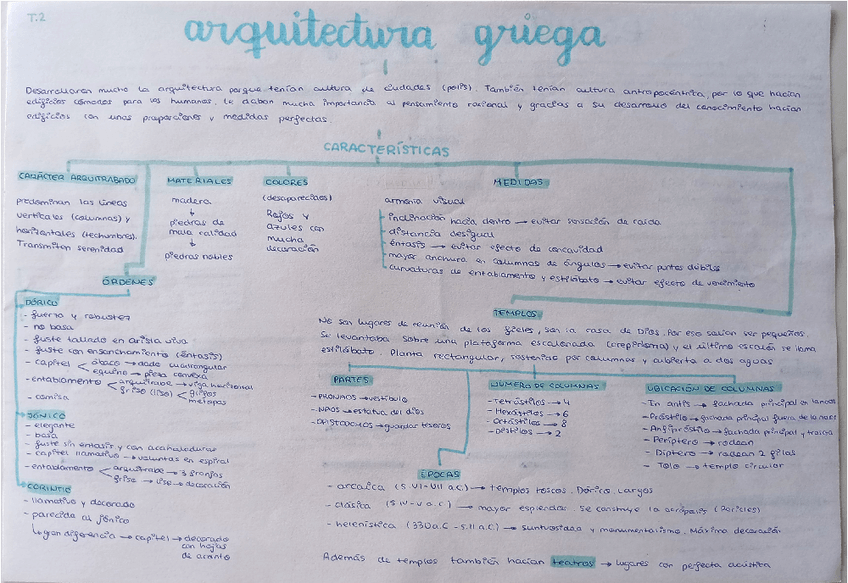 T.2
arquitectura griega
Desarrollaron mucho la arquitectura porque tenían cultura de ciudades (polis). También tenían cultura antropocéntrica, por lo que hacían
edificios cómodos para los humanos. Le daban mucha importancia al pensamiento racional y gracias a su desarrollo del conocimiento hacían
edificios con unas proporciones y medidas perfectas.
CARACTERÍSTICAS
CARÁCTER ARQUITRABADO
predominan las líneas
verticales (columnas) y
horizontales (techumbres).
Transmiten serenidad
MATERIALES
madera
↓
piedras de
mala calidad
↓
piedras nobles
COLORES
(desaparecidos)
Rojos y
azules con
mucha
decoración
MEDIDAS
armonía visual
inclinación hacia dentro → evitar sensación de caída
distancia desigual
éntasis → evitar efecto de concavidad
mayor anchura en columnas de ángulos → evitar puntos débiles
curvaturas de entablamento y estilóbato → evitar efecto de vencimiento
ÓRDENES
DÓRICO
- fuerza y robustez
- no basa
- fuste tallado en arista viva
- fuste con ensanchamiento (éntasis)
- capitel < ábaco → dado cuadrangular
equino → pieza convexa
- entablamento < arquitrabe → viga horizontal
friso (liso) < glifos
metopas
- cornisa
JÓNICO
- elegante
- basa
- fuste sin éntasis y con acanaladuras
- capitel llamativo → volutas en espiral
- entablamento < arquitrabe → 3 franjas
friso → liso → decoración
CORINTIO
- llamativo y decorado
- parecido al jónico
↳ gran diferencia → capitel → decorado
con hojas
de acanto
TEMPLOS
No son lugares de reunión de los fieles, son la casa de Dios. Por eso solían ser pequeños.
Se levantaba sobre una plataforma escalonada (crepidoma) y el último escalón se llama
estilóbato. Planta rectangular, sostenido por columnas y cubierta a dos aguas
PARTES
- PRONAOS → vestíbulo
- NAOS → estatua del dios
- OPISTODOMOS → guardar tesoros
NÚMERO DE COLUMNAS
- Tetrástilos → 4
- Hexástilos → 6
- Octástilos → 8
- Dístilos → 2
UBICACIÓN DE COLUMNAS
- In antis → fachada principal en la naos
- Próstilo → fachada principal fuera de la naos
- Anfipróstilo → fachada principal y trasera
- Períptero → rodean
- Díptero → rodean 2 filas
- Tolo → templo circular
ÉPOCAS
- arcaica (S. VI-VII a.C.) → templos toscos. Dórico. Largos
- clásica (S. IV-V a.C.) → mayor esplendor. Se construye la acrópolis (Pericles)
- helenística (330 a.C - S. II a.C) → suntuosidad y monumentalismo. Máxima decoración
Además de templos también hacían teatros → lugares con perfecta acústica